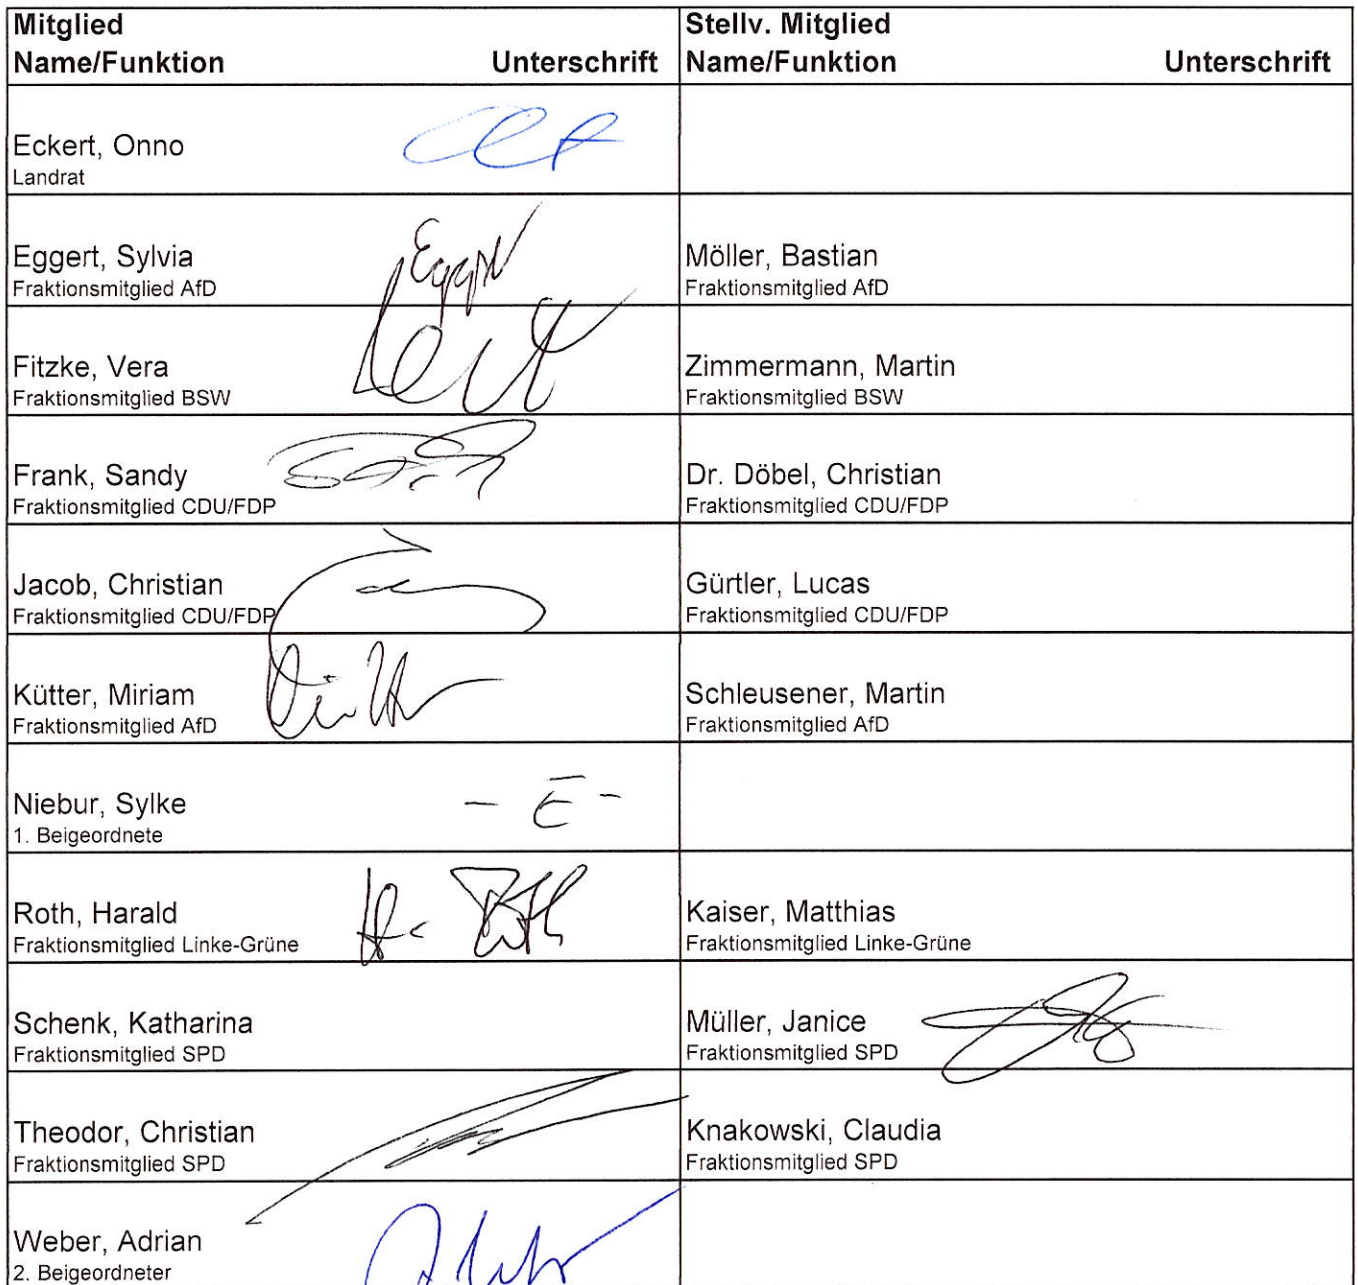 Mitglied
Name/Funktion Unterschrift
Stellv. Mitglied
Name/Funktion Unterschrift
Eckert, Onno
Landrat
Eggert, Sylvia
Fraktionsmitglied AfD
Eggert
Möller, Bastian
Fraktionsmitglied AfD
Fitzke, Vera
Fraktionsmitglied BSW
Zimmermann, Martin
Fraktionsmitglied BSW
Frank, Sandy
Fraktionsmitglied CDU/FDP
Dr. Döbel, Christian
Fraktionsmitglied CDU/FDP
Jacob, Christian
Fraktionsmitglied CDU/FDP
Gürtler, Lucas
Fraktionsmitglied CDU/FDP
Kütter, Miriam
Fraktionsmitglied AfD
Schleusener, Martin
Fraktionsmitglied AfD
Niebur, Sylke
1. Beigeordnete
- E -
Roth, Harald
Fraktionsmitglied Linke-Grüne
Kaiser, Matthias
Fraktionsmitglied Linke-Grüne
Schenk, Katharina
Fraktionsmitglied SPD
Müller, Janice
Fraktionsmitglied SPD
Theodor, Christian
Fraktionsmitglied SPD
Knakowski, Claudia
Fraktionsmitglied SPD
Weber, Adrian
2. Beigeordneter